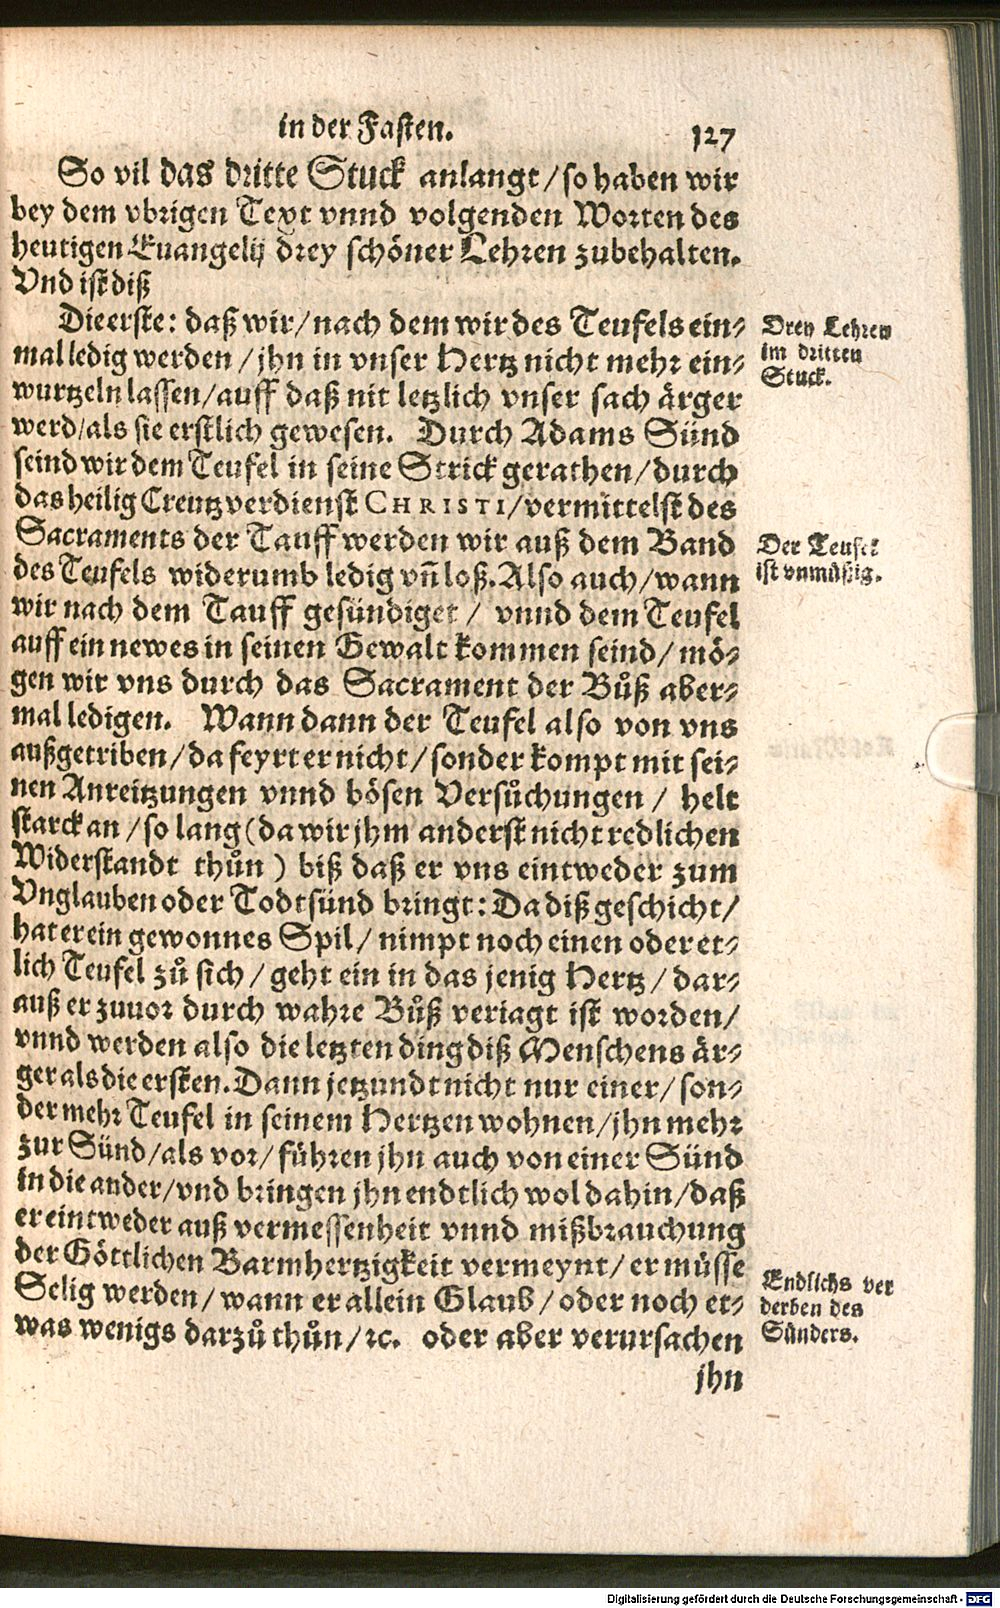 in der Fasten. 127
So vil das dritte Stuck anlangt / so haben wir
bey dem vbrigen Text vnnd volgenden Worten des
heutigen Euangelij drey schöner Lehren zubehalten.
Vnd ist diß
Die erste: daß wir / nach dem wir des Teufels ein-
mal ledig werden / jhn in vnser Hertz nicht mehr ein-
wurtzeln lassen / auff daß nit letzlich vnser sach ärger
werd / als sie erstlich gewesen. Durch Adams Sünd
seind wir dem Teufel in seine Strick gerathen / durch
das heilig Creutzverdienst CHRISTI / vermittelst des
Sacraments der Tauff werden wir auß dem Band
des Teufels widerumb ledig vñ loß. Also auch / wann
wir nach dem Tauff gesündiget / vnnd dem Teufel
auff ein newes in seinen Gewalt kommen seind / mö-
gen wir vns durch das Sacrament der Bůß aber-
mal ledigen. Wann dann der Teufel also von vns
außgetriben / da feyrt er nicht / sonder kompt mit sei-
nen Anreitzungen vnnd bösen Versůchungen / helt
starck an / so lang (da wir jhm anderst nicht redlichen
Widerstandt thůn) biß daß er vns eintweder zum
Vnglauben oder Todtsünd bringt: Da diß geschicht /
hat er ein gewonnes Spil / nimpt noch einen oder et-
lich Teufel zů sich / geht ein in das jenig Hertz / dar-
auß er zuuor durch wahre Bůß veriagt ist worden /
vnnd werden also die letzten ding diß Menschens är-
ger als die ersten. Dann jetzundt nicht nur einer / son-
der mehr Teufel in seinem Hertzen wohnen / jhn mehr
zur Sünd / als vor / führen jhn auch von einer Sünd
in die ander / vnd bringen jhn endtlich wol dahin / daß
er eintweder auß vermessenheit vnnd mißbrauchung
der Göttlichen Barmhertzigkeit vermeynt / er müsse
Selig werden / wann er allein Glaub / oder noch et-
was wenigs darzů thůn / ꝛc. oder aber verursachen
jhn
Drey Lehren
im dritten
Stuck.
Der Teufel
ist vnmüssig.
Endlichs ver
derben des
Sünders.
Digitalisierung gefördert durch die Deutsche Forschungsgemeinschaft - DFG